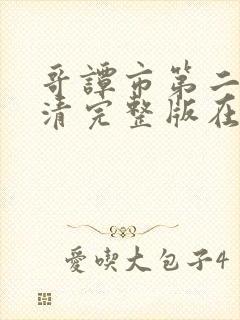 哥譚市第二
清完整版在
愛喫大包子4